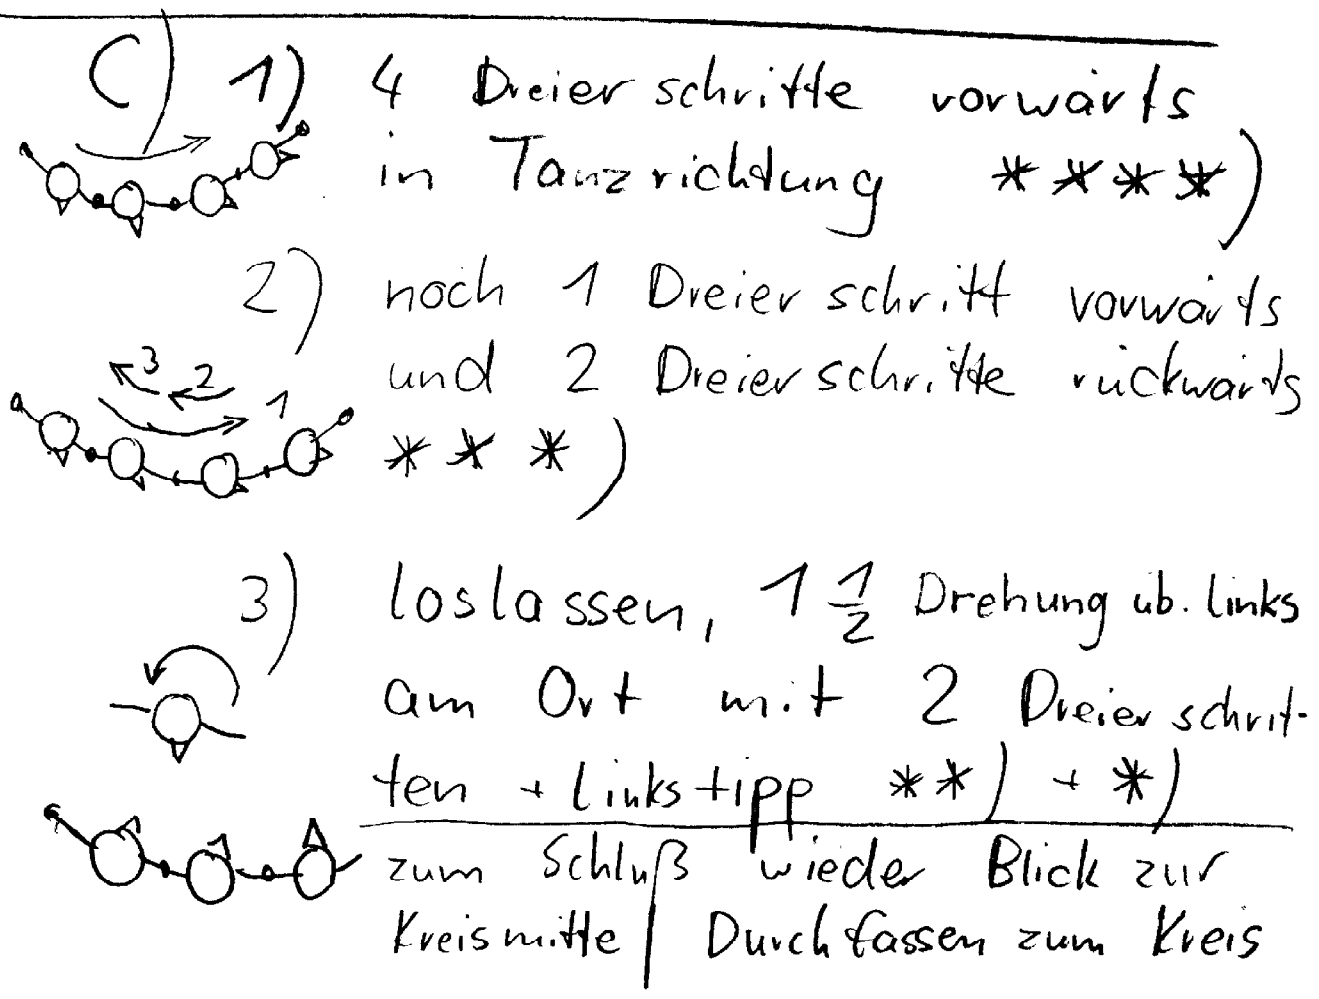 C) 1) 4 Dreierschritte vorwärts
in Tanzrichtung ****)
2) noch 1 Dreierschritt vorwärts
3 2 1 und 2 Dreierschritte rückwärts
***)
3) loslassen, 1 1/2 Drehung üb. links
am Ort mit 2 Dreierschrit-
ten + Linkstipp **) + *)
zum Schluß wieder Blick zur
Kreismitte / Durchfassen zum Kreis